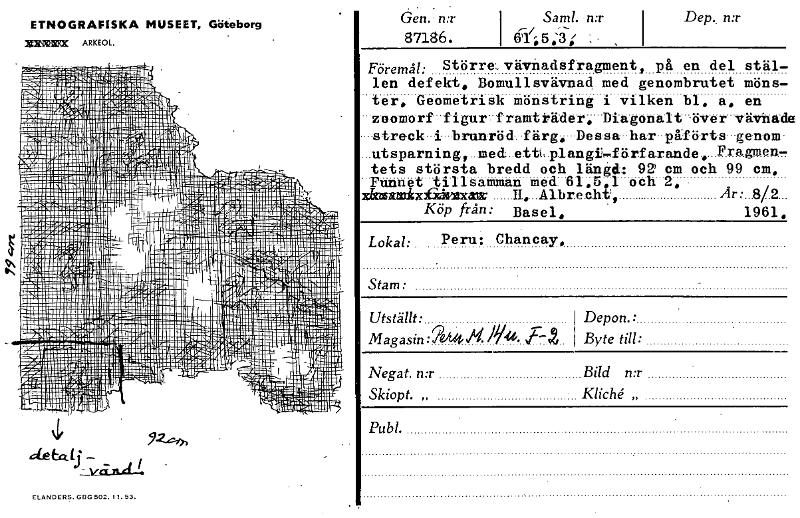 ETNOGRAFISKA MUSEET, Göteborg
ARKEOL.
99 cm
92 cm
detalj-
vänd!
ELANDERS. GBG 502. 11. 53.
Gen. n:r Saml. n:r Dep. n:r
87186. 61.5.3.
Föremål: Större vävnadsfragment, på en del stäl-
len defekt. Bomullsvävnad med genombrutet möns-
ter. Geometrisk mönstring i vilken bl. a. en
zoomorf figur framträder. Diagonalt över vävnade
streck i brunröd färg. Dessa har påförts genom
utsparning, med ett plangi-förfarande. Fragmen-
tets största bredd och längd: 92 cm och 99 cm.
Funnet tillsamman med 61.5.1 och 2.
H. Albrecht, År: 8/2
Köp från: Basel. 1961.
Lokal: Peru: Chancay.
Stam:
Utställt: Depon.:
Magasin: Peru M. 14u. F-2 Byte till:
Negat. n:r Bild n:r
Skiopt. „ Kliché „
Publ.